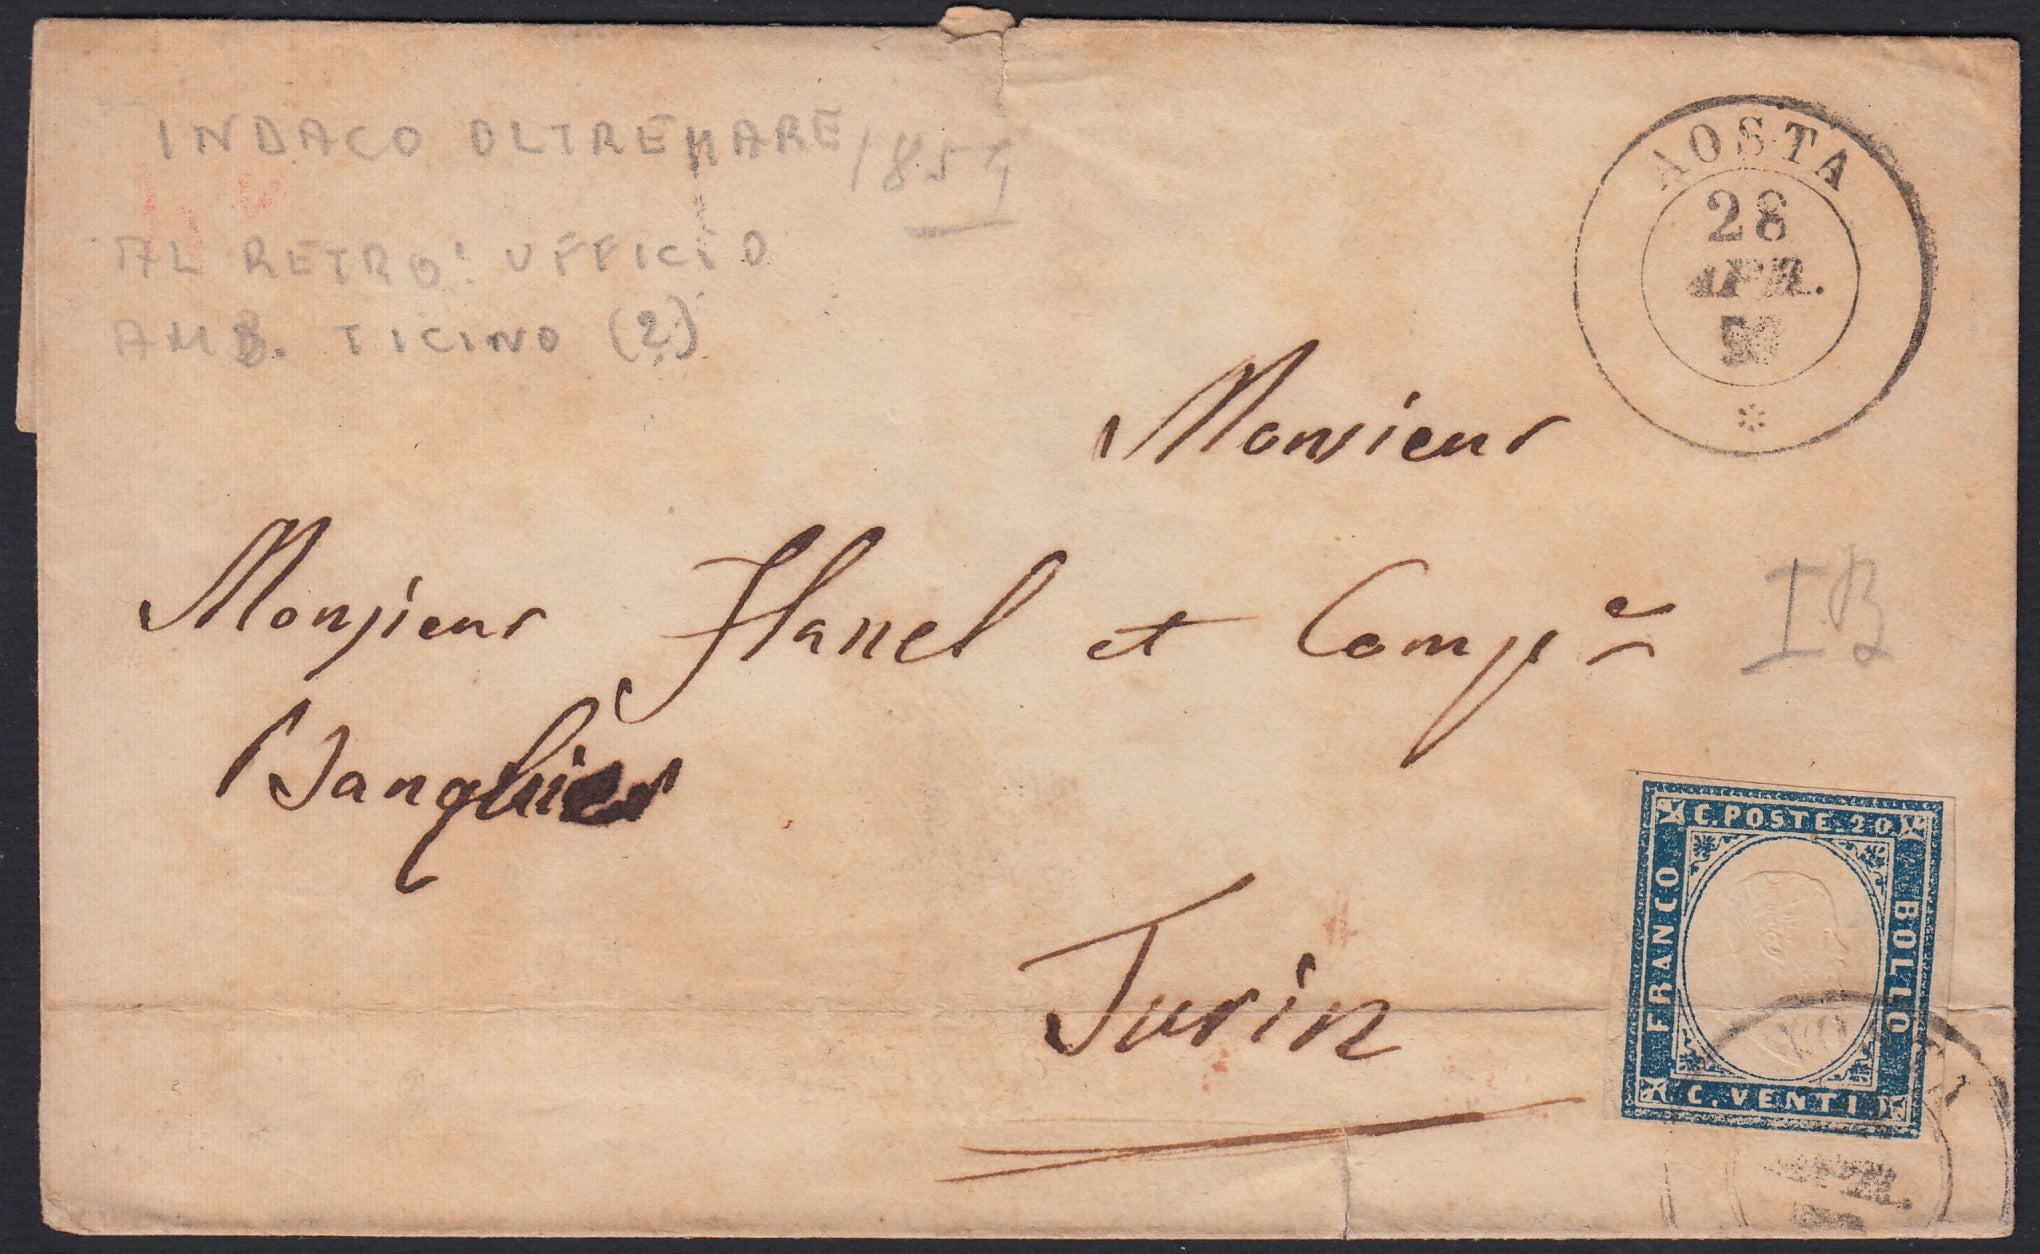 INDACO OLTREMARE 1859
AL RETRO: UFFICIO
AMB. TICINO (2)
AOSTA
28
APR.
Monsieur
Monsieur Flanel et Comp.e
IB
Banquier
Turin
C. POSTE. 20
FRANCO
BOLLO
C. VENTI
APR.